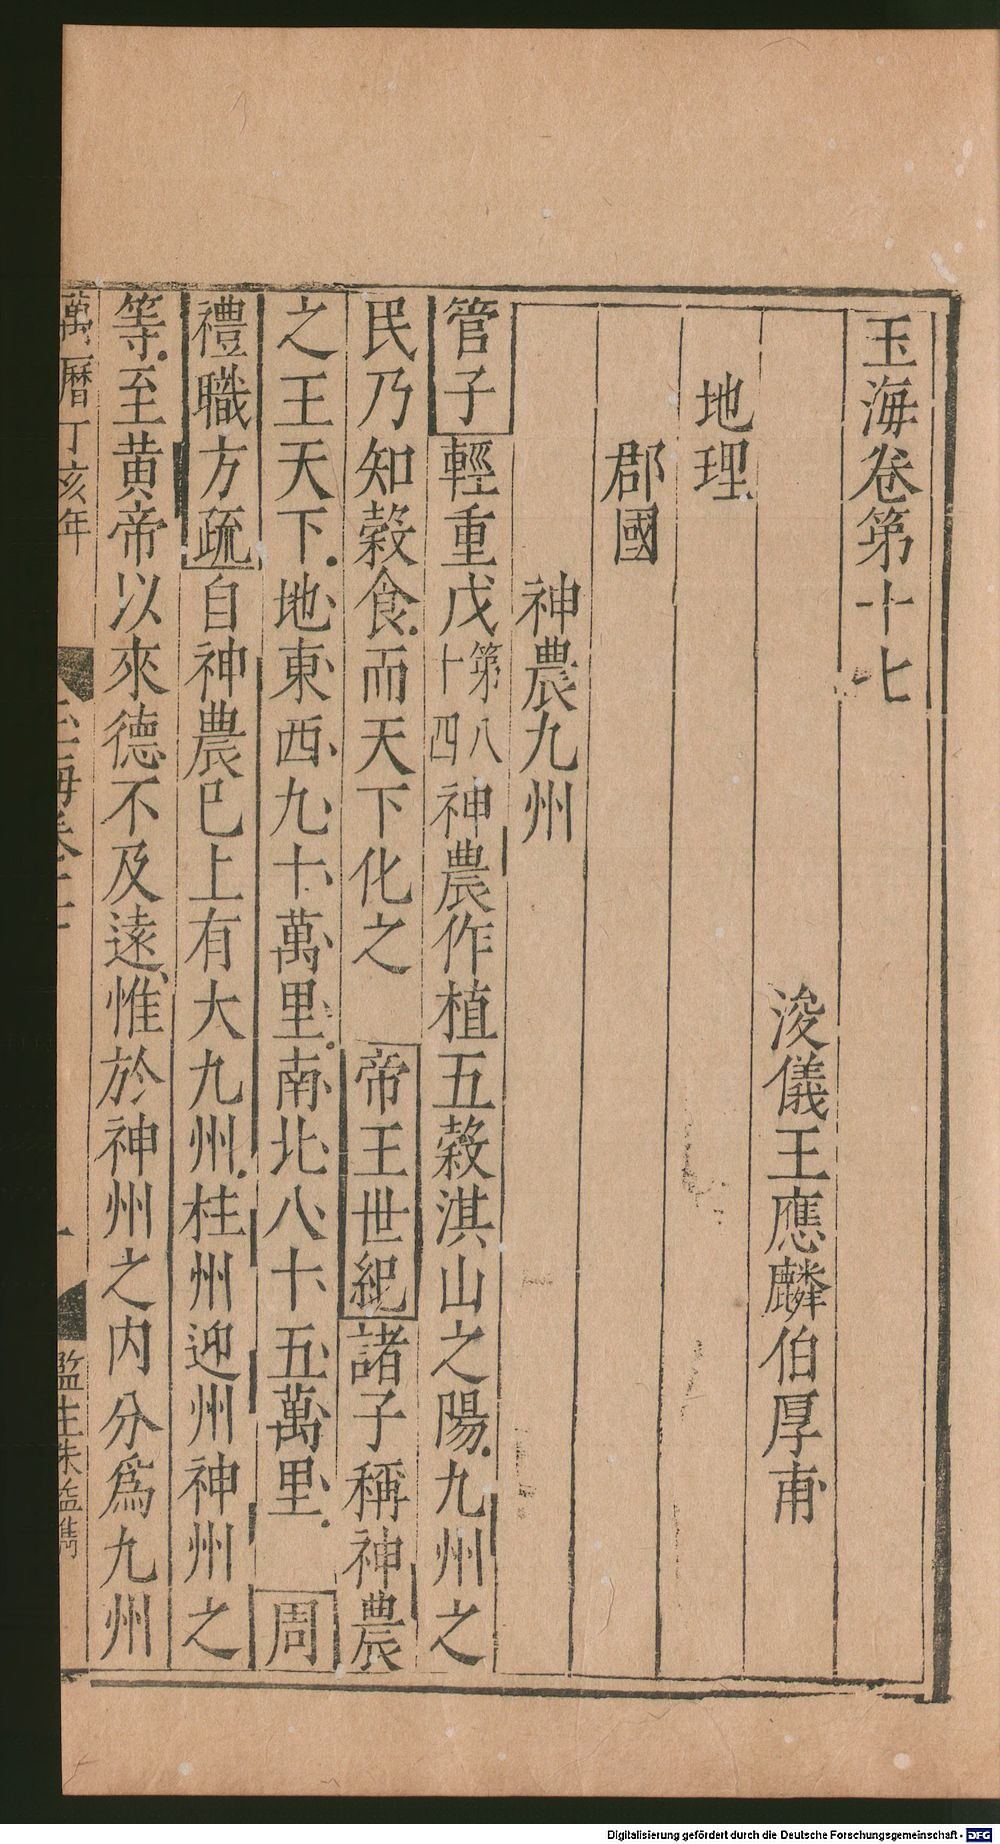 玉海卷第十七
浚儀王應麟伯厚甫
地理
郡國
神農九州
管子輕重戊第八十四神農作植五穀淇山之陽九州之
民乃知穀食而天下化之 帝王世紀諸子稱神農
之王天下地東西九十萬里南北八十五萬里 周
禮職方疏自神農已上有大九州桂州迎州神州之
等至黃帝以來德不及遠惟於神州之內分爲九州
萬曆丁亥年
玉海卷十七
一
監生朱
Digitalisierung gefördert durch die Deutsche Forschungsgemeinschaft - DFG